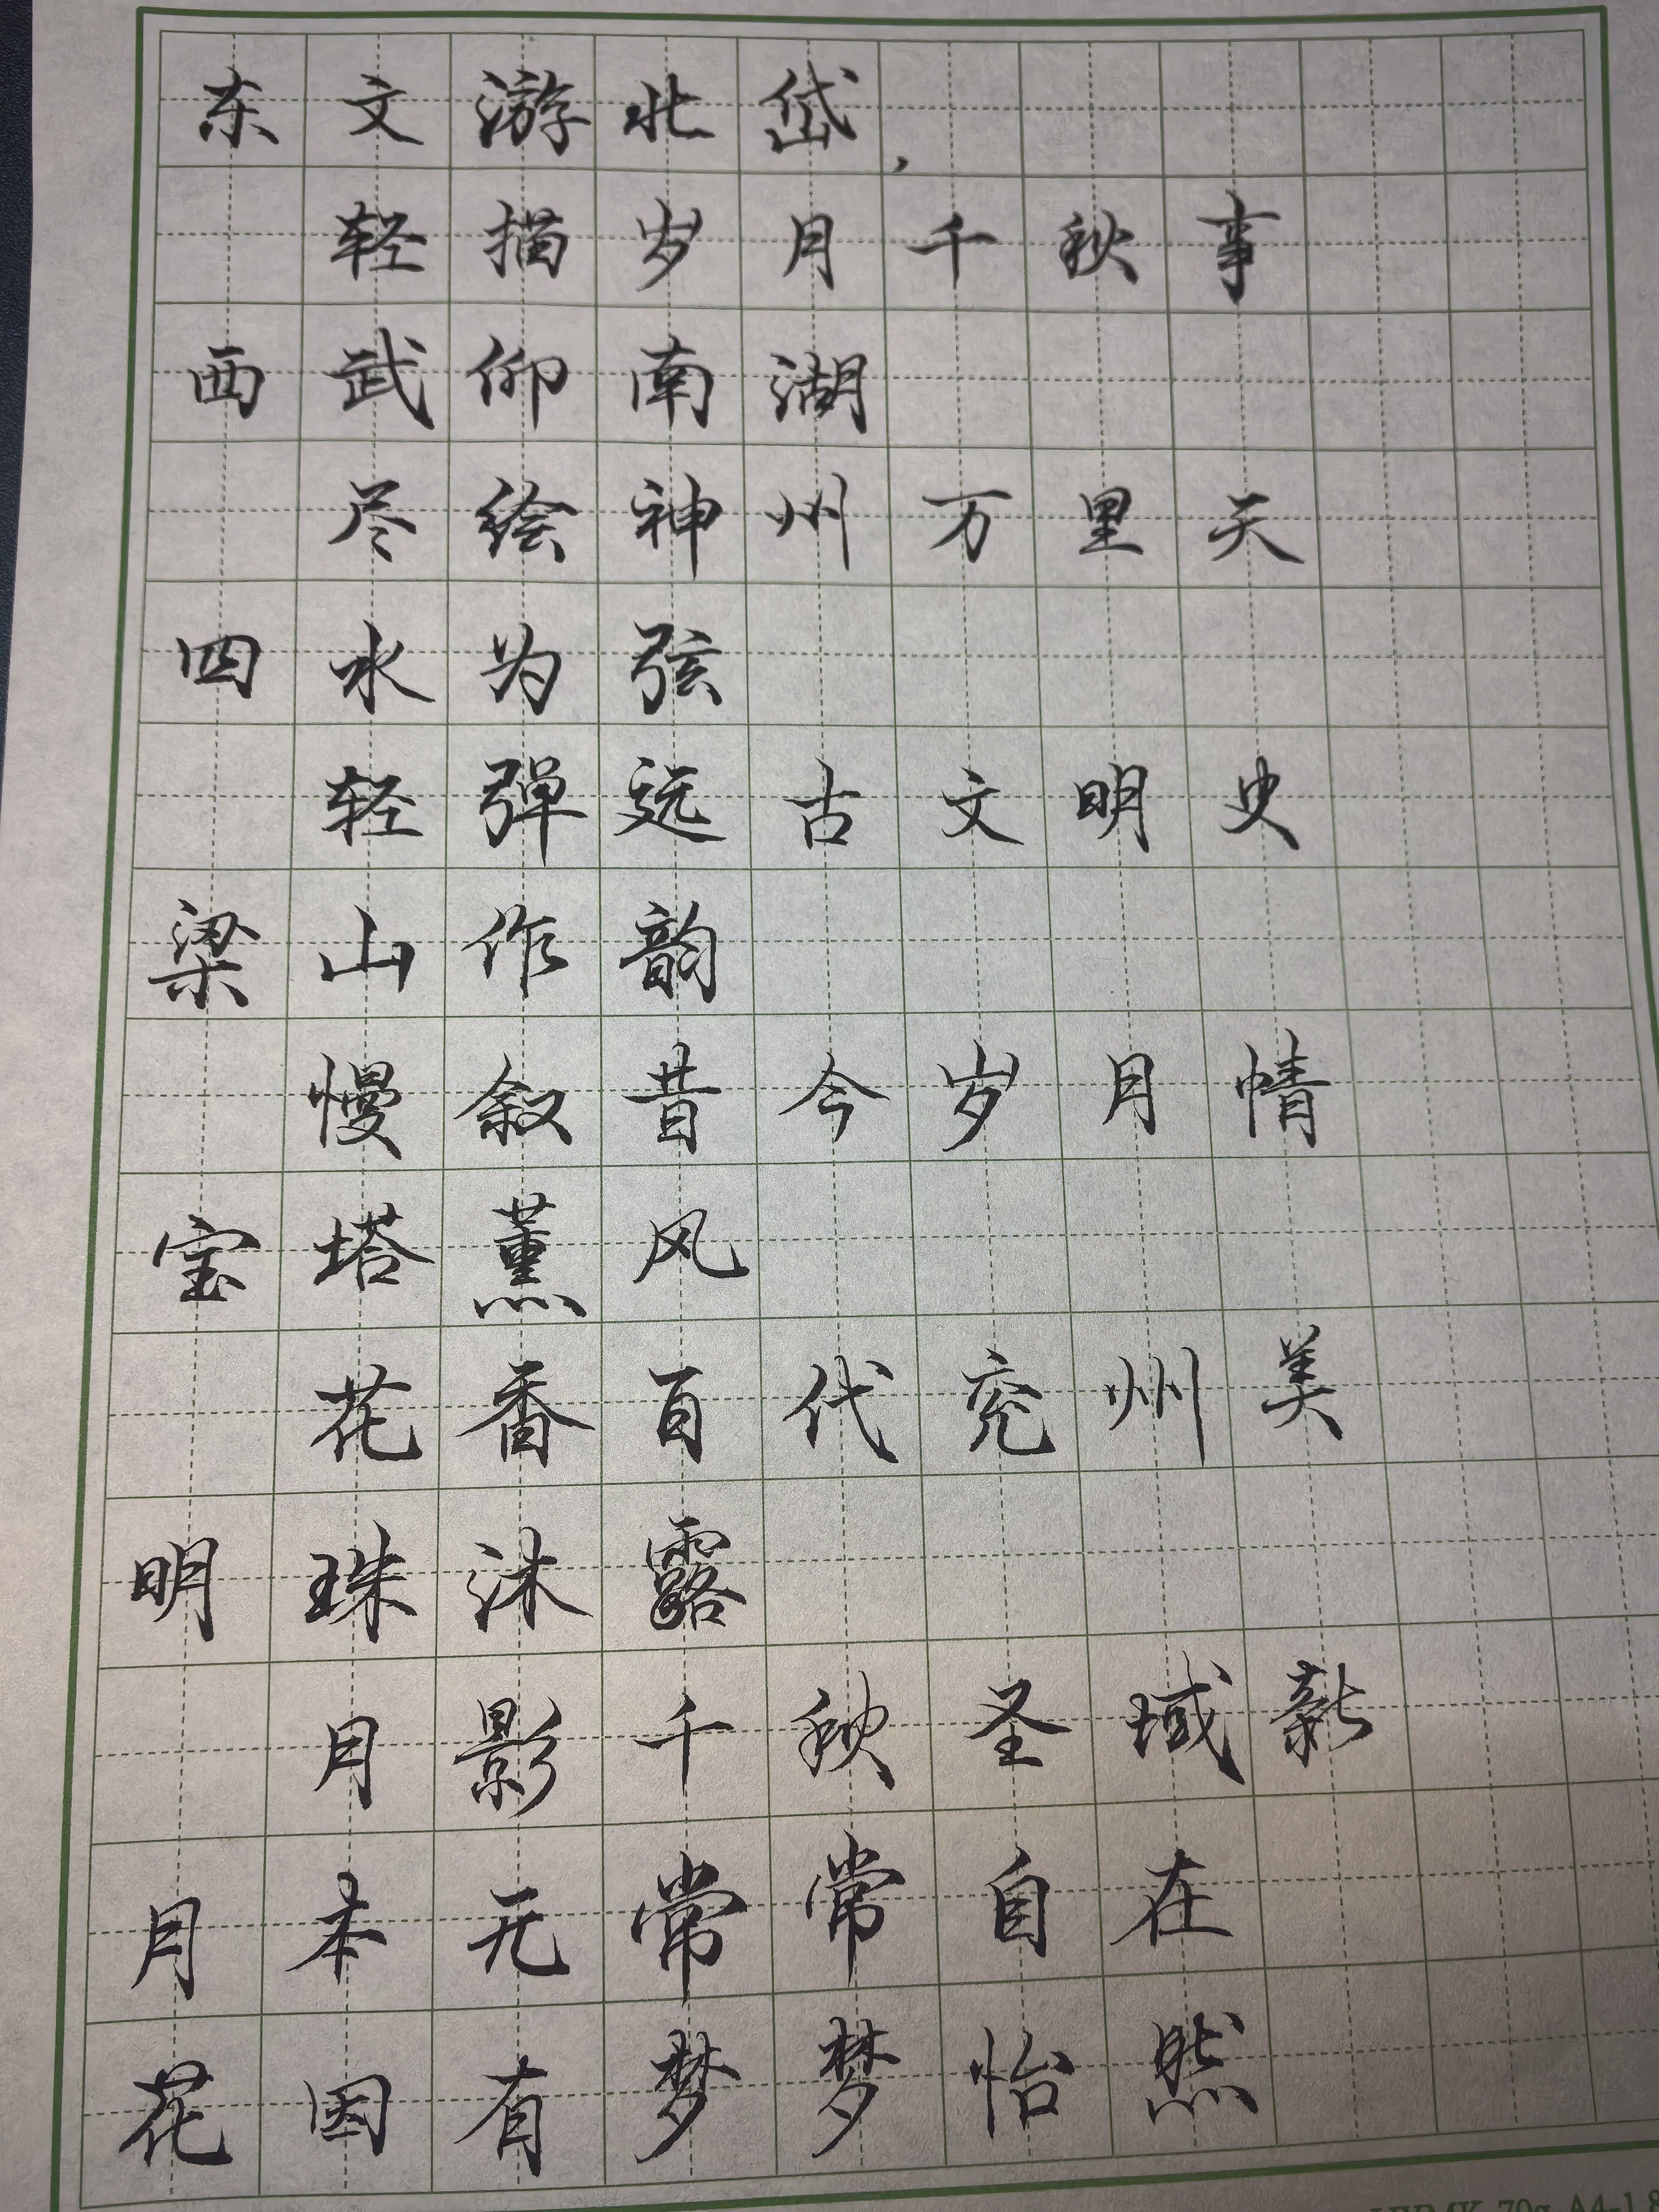 东文游北岱，
轻描岁月千秋事
西武仰南湖
尽绘神州万里天
四水为弦
轻弹远古文明史
梁山作韵
慢叙昔今岁月情
宝塔薰风
花香百代兖州美
明珠沐露
月影千秋圣域新
月本无常常自在
花因有梦梦怡然